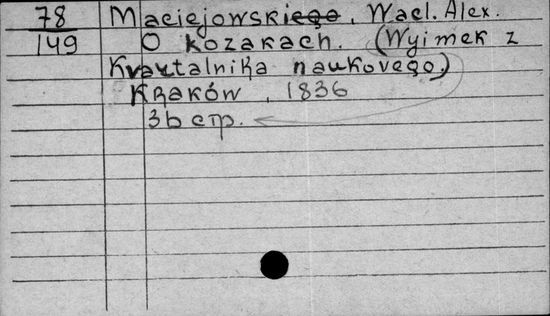 78 Maciejowskiego, Wacl. Alex.
149 O kozakach. (Wyimek z
Kwartalnika naukovego)
Kraków, 1836
36 стр.